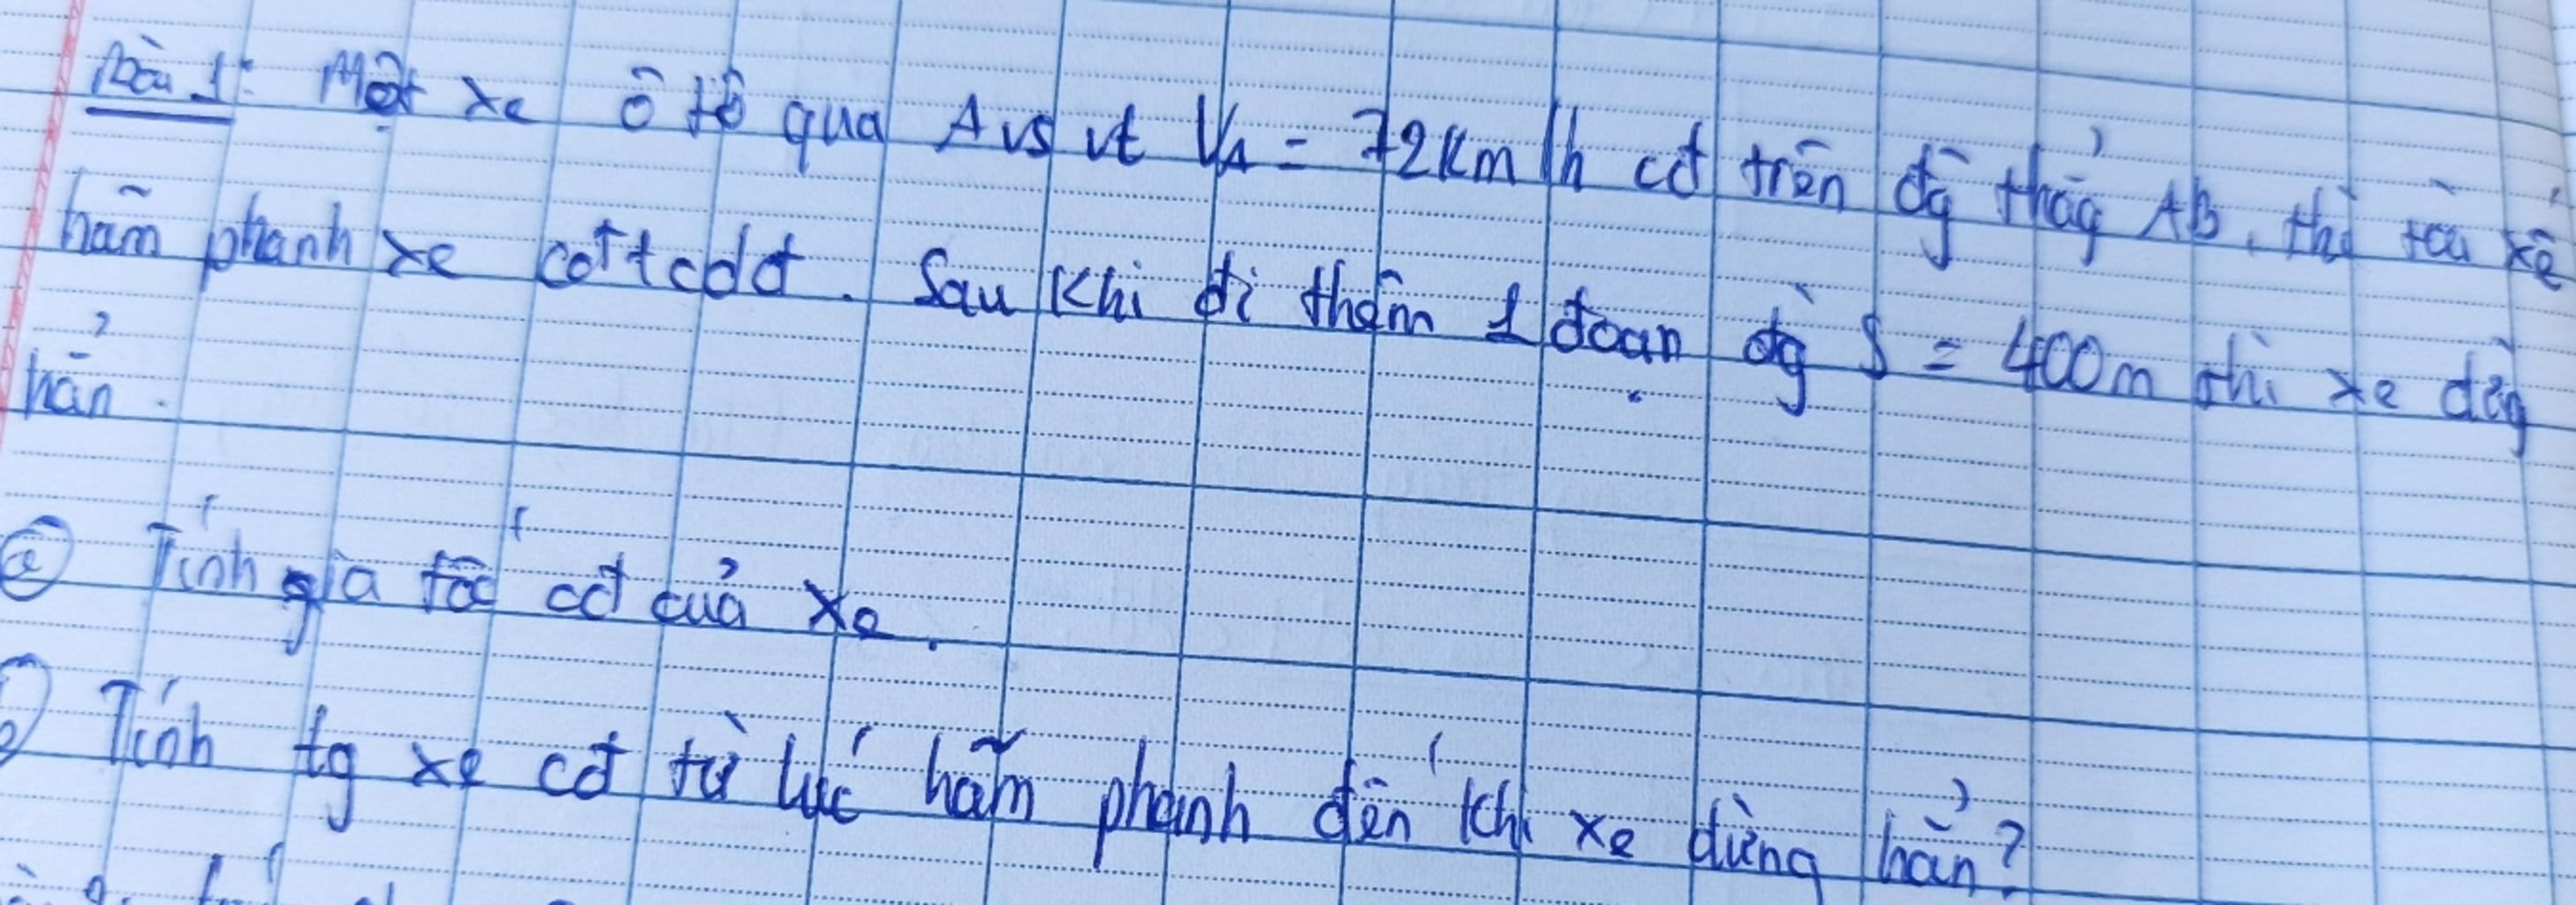 Bài 1: Một xe ô tô qua A vs vt VA = 72km/h cđ trên đg thẳg AB, thì tài xế
hãm phanh xe cđttcdđ. Sau khi đi thêm 1 đoạn đg S = 400m thì xe dừg
hẳn.
a Tính gia tốc cđ của xe.
Tính tg xe cđ từ lúc hãm phanh đến khi xe dừng hẳn?